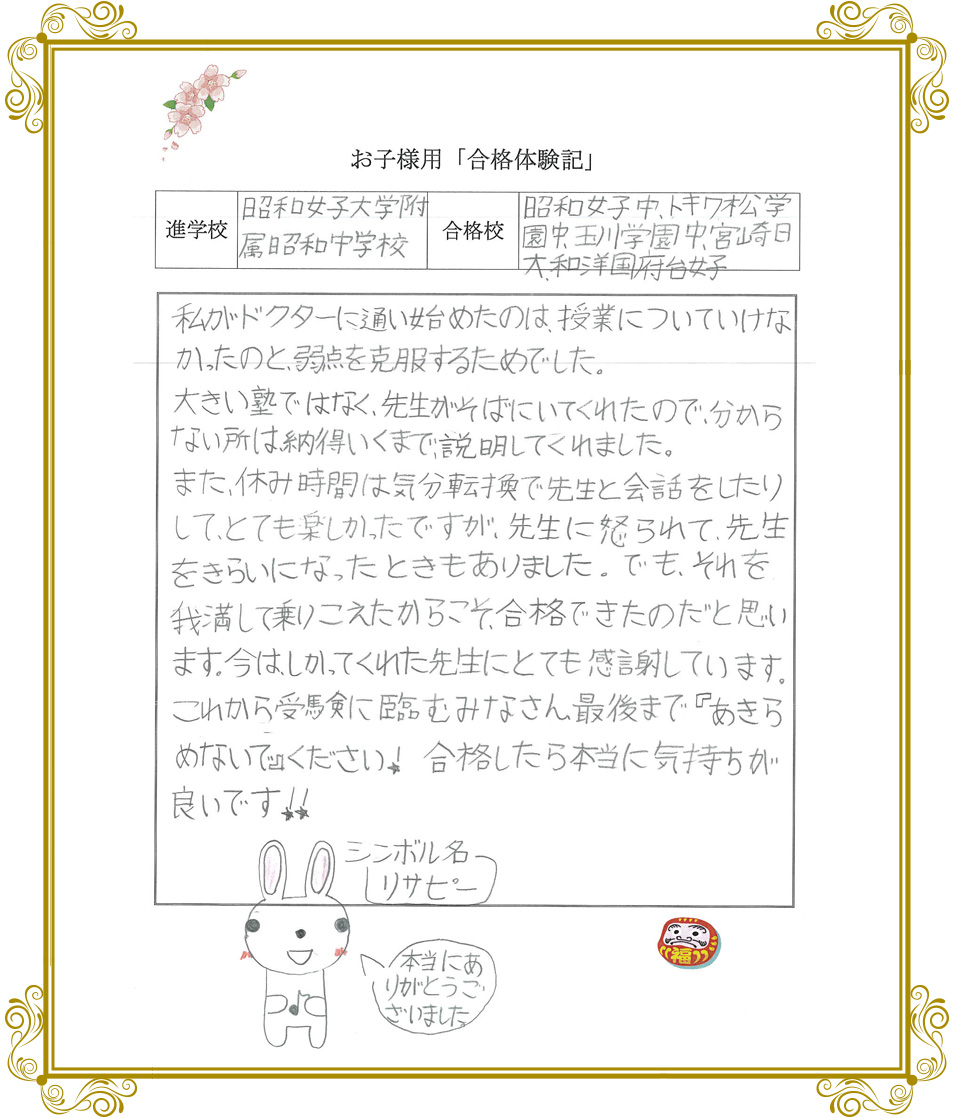 お子様用「合格体験記」
進学校
昭和女子大学附
属昭和中学校
合格校
昭和女子中、トキワ松学
園中、玉川学園中、宮崎日
大、和洋国府台女子
私がドクターに通い始めたのは、授業についていけな
かったのと、弱点を克服するためでした。
大きい塾ではなく、先生がそばにいてくれたので、分から
ない所は納得いくまで、説明してくれました。
また、休み時間は気分転換で先生と会話をしたり
して、とても楽しかったですが、先生に怒られて、先生
をきらいになったときもありました。でも、それを
我満して乗りこえたからこそ、合格できたのだと思い
ます。今は、しかってくれた先生にとても感謝しています。
これから受験に臨むみなさん、最後まで『あきら
めないで』ください! 合格したら本当に気持ちが
良いです!!
シンボル名
リサピー
本当にあ
りがとうご
ざいました
福